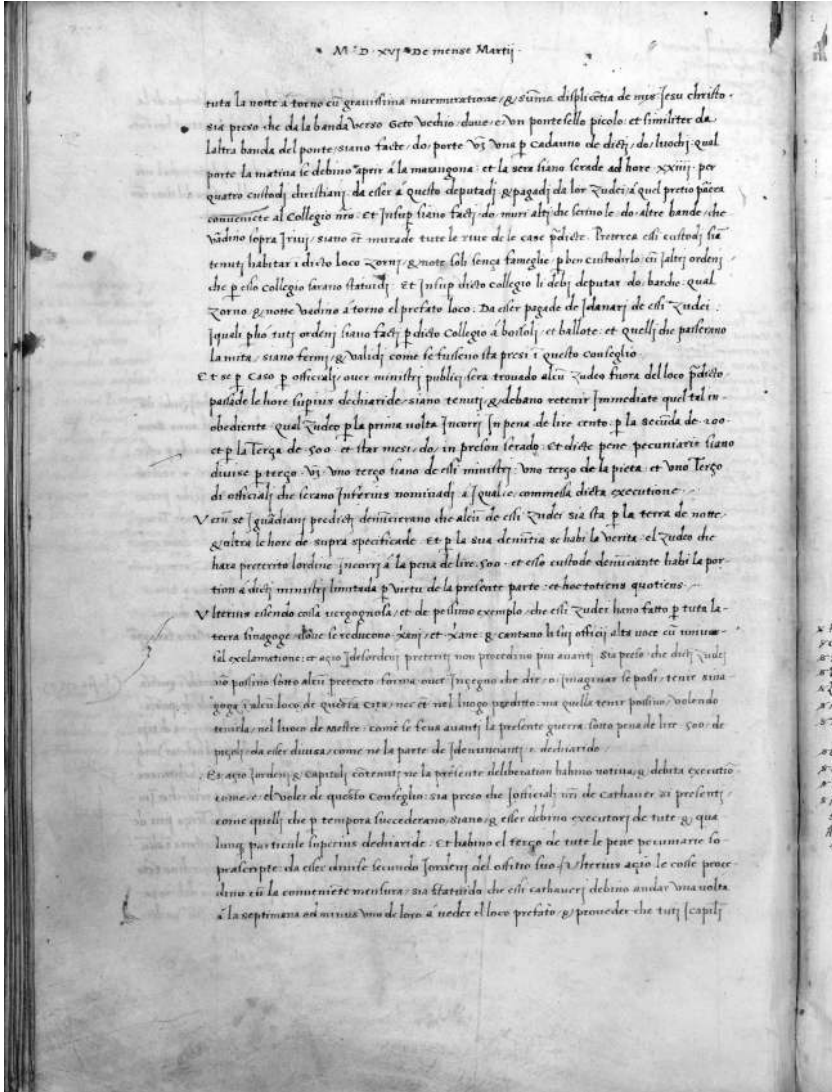 M · D · XVI · De mense Martij ·
tuta la notte a torno cũ gravissima murmuratione, & sum̃a displicẽtia de mis. Jesu christo ·
sia preso che da la banda verso Geto vechio, dove, e, un pontesello picolo: et similiter da
laltra banda del ponte, siano facte, do, porte vʒ una ꝑ cadauno de dictj, do, luochj: qual
porte la matina se debino aprir à la marangona: et la sera siano serade ad hore XXIIIJ · per
quatro custodj christianj, da esser à questo deputadj & pagadj da lor zudei, à quel pretio parera
conveniẽte al Collegio nr̃o: Et insuꝑ siano factj, do, muri alti, che serino le, do, altre bande, che
vadino sopra J rivj, siano et murade tute le rive de le case p̃dicte. Preterea essi custodj siã
tenutj habitar i dicto loco zornj, & note soli senza fameghe, ꝑ ben custodirlo, cũ J altri ordenj
che ꝑ esso Collegio sarano statuidj: Et Insuꝑ dicto Collegio li debj deputar, do, barche: qual
zorno, & notte vadino à torno el prefato loco: Da esser pagade de J danari de essi zudei:
J quali ꝑhò tuti ordeni siano factj ꝑ dicto Collegio à bossoli, et ballote: et quelli che passerano
la mita, siano fermi, & validj come se fusseno sta presi i questo conseglio
Et se ꝑ caso ꝑ officialj, over ministri publicj sera trovado alcũ zudeo fuora del loco p̃dicto,
passade le hore suꝑius dechiaride, siano tenutj, & debano retenir Immediate quel tal in-
obediente, qual zudeo ꝑ la prima volta Incorrj In pena de lire cento: ꝑ la secũda de 200 ·
et ꝑ la Terça de 500 · et star mesi, do, in preson serado: Et dicte pene pecuniarie siano
divise ꝑ terço · vʒ uno terço siano de essi ministri: uno terço de la pieta: et uno Terço
di officialj che serano Inferius nominadj, à J quali, e, commessa dicta executione.
Verũ se J guadianj predictj denũcierano che alcũ de essi zudei sia sta ꝑ la terra de notte,
& oltra le hore de supra specificade. Et ꝑ la sua denũtia se habi la verita: el zudeo che
hara preterito lordine incorri à la pena de lire 500 · et esso custode denũciante habi la por-
tion à dictj ministrj limitada ꝑ virtu de la presente parte: et hoc totiens quotiens.
Ulterius essendo cossa vergognosa, et de pessimo exemplo, che essi zudei hano fatto ꝑ tuta la
terra sinagoge, dove se reducono xãni, et xãne, & cantano li sui officij alta voce cũ univer-
sal exclamatione: et açio J desordenj preteritj non procedino piu avantj. Sia preso, che dictj zudej
nõ possino sotto alcũ pretexto, forma, over ingegno che dir, o, imaginar se possi, tenir sina-
goga i alcũ loco de questa cita, nec et nel luogo p̃editto: ma quella tenir possino, volendo
tenirla, nel luoco de Mestre, come se feva avantj la presente guerra, sotto pena de lire 500, de
piçolj, da esser divisa, come ne la parte de J denunciantj, e, dechiarido.
Et açio J ordenj, & Capitolj cõtenutj ne la presente deliberation habino votiva, & debita executiõ
come, e, el voler de questo Conseglio: sia preso che J officialj nr̃i de Cathaver si presentj,
come quellj che ꝑ tempora succederano, siano, & esser debino executorj de tute, & qua
lunqꝫ particule superius dechiaride. Et habino el terço de tute le pene pecuniarie so-
prascripte, da esser divise secundo J ordenj del offitio suo. Ulterius açio le cosse proce-
dino cũ la conveniẽte mensura, sia statuido che essi cathaverj debino andar una volta
à la septimana ad minus uno de loro à veder el loco prefato, & proveder che tutj J capitolj